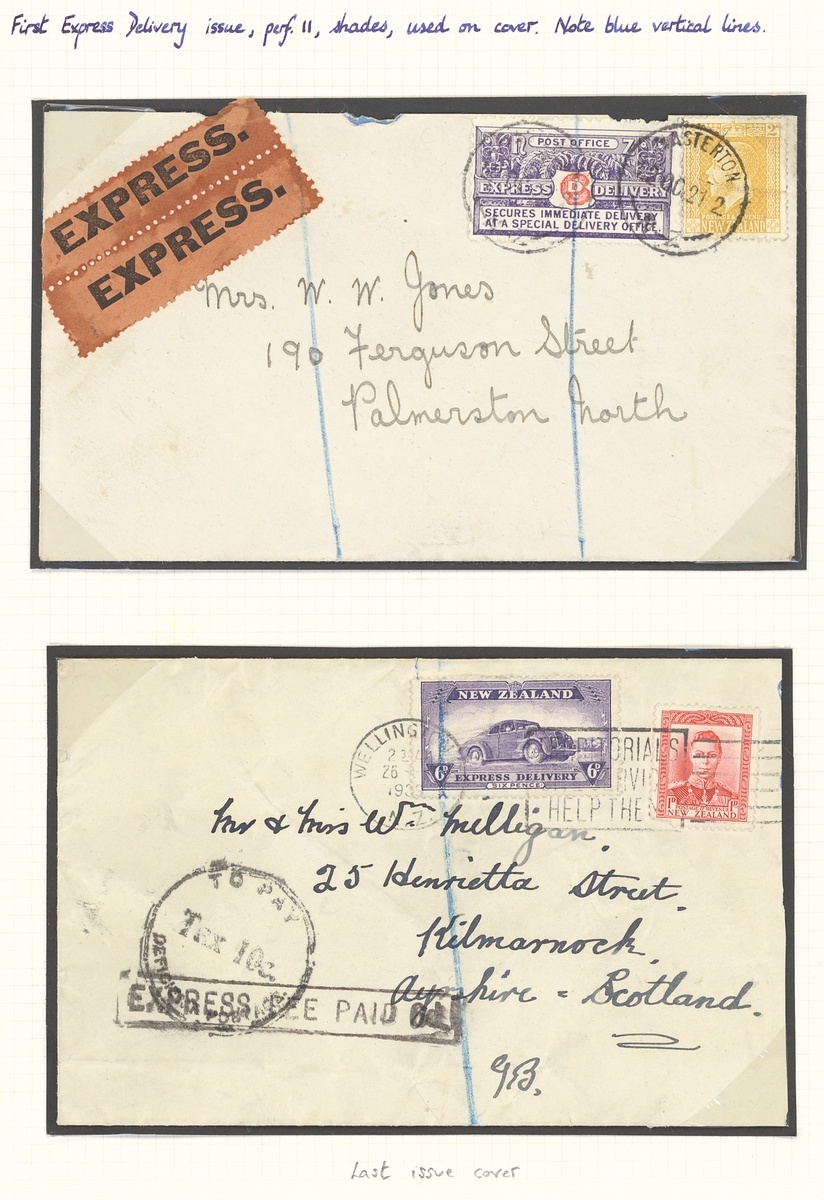 First Express Delivery issue, perf. 11, shades, used on cover. Note blue vertical lines.
EXPRESS.
EXPRESS.
POST OFFICE
EXPRESS D DELIVERY
SECURES IMMEDIATE DELIVERY
AT A SPECIAL DELIVERY OFFICE
MASTERTON
2
NEW ZEALAND
Mrs. W. W. Jones
190 Ferguson Street
Palmerston North
NEW ZEALAND
6D EXPRESS DELIVERY 6D
SIX PENCE
WELLINGTON
26
193
N.Z.
HELP THE
1D POSTAGE & REVENUE 1D
NEW ZEALAND
Mr & Mrs Wm Milligan.
25 Henrietta Street.
Kilmarnock.
Ayrshire = Scotland.
G.B.
TO PAY
Tax 10c.
EXPRESS FEE PAID 6d.
Last issue cover